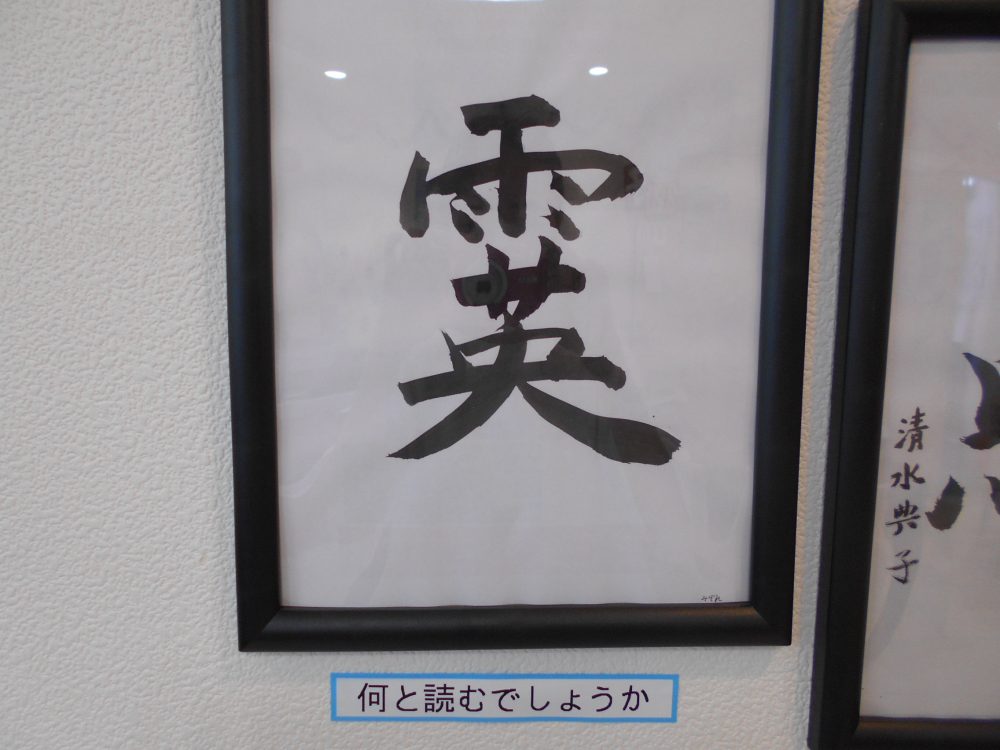 霙
みぞれ
何と読むでしょうか
清水典子